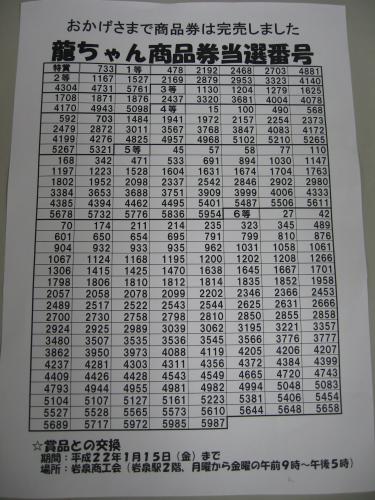 おかげさまで商品券は完売しました
龍ちゃん商品券当選番号
特賞 733 1等 478 2192 2468 2703 4881
2等 1167 1527 2169 2879 2953 3323 4140
4304 4731 5761 3等 1130 1204 1279 1625
1708 1871 1876 2437 3320 3681 4004 4078
4170 4943 5098 4等 15 100 490 568
592 703 1484 1941 1972 2157 2254 2373
2479 2872 3011 3567 3768 3847 4083 4172
4199 4276 4825 4957 4968 5102 5210 5265
5267 5321 5等 45 57 58 77 110
168 342 471 533 691 894 1030 1147
1197 1223 1528 1604 1631 1674 1704 1763
1802 1952 2098 2337 2542 2846 2902 2980
3384 3653 3688 3751 3909 3999 4006 4333
4385 4394 4462 4495 5401 5487 5506 5611
5678 5732 5776 5836 5954 6等 27 42
70 174 211 214 235 323 345 489
601 650 654 695 791 799 810 876
904 932 933 935 962 1031 1058 1061
1067 1124 1168 1195 1200 1202 1208 1266
1306 1415 1425 1470 1638 1645 1667 1701
1798 1806 1810 1812 1814 1835 1852 1958
2057 2058 2078 2099 2202 2346 2366 2453
2489 2517 2522 2543 2544 2626 2631 2666
2700 2730 2758 2798 2810 2850 2855 2858
2924 2925 2989 3039 3062 3195 3221 3357
3480 3507 3535 3536 3545 3566 3776 3777
3862 3950 3973 4088 4119 4205 4206 4207
4237 4281 4303 4311 4366 4372 4384 4399
4409 4426 4428 4543 4549 4665 4720 4743
4793 4944 4955 4981 4982 4994 5048 5083
5104 5107 5131 5161 5223 5381 5406 5454
5527 5528 5565 5573 5610 5644 5648 5658
5689 5717 5972 5985 5987
☆賞品との交換
期間：平成22年1月15日（金）まで
場所：岩泉商工会（岩泉駅2階、月曜から金曜の午前9時～午後5時）